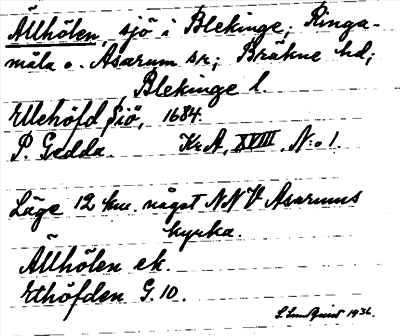 Ällhölen sjö i Blekinge; Ringa-
måla o. Asarum sn; Bräkne hd;
Blekinge l.
Ellehöfd Siö, 1684.
P. Gedda. KrA, XVIII, N:o 1.
Läge 12 km. något NNV Asarums
kyrka.
Ällhölen ek.
Ethöfden G. 10.
S. Lundquist 1936.